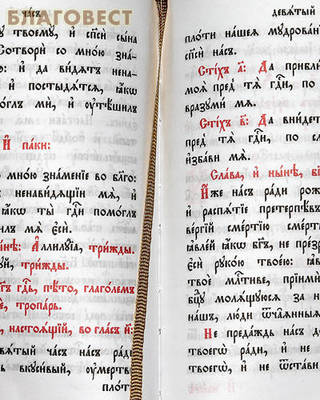 БЛАГОВЕСТ
часъ
у твоемꙋ, и҆ спсѝ сына
Сотворѝ со мно́ю зна́
о: и҆ да ви́дѧтъ нена
и҆ постыдѧ́тся, ꙗ҆́кѡ
помо́глъ мѝ, и҆ ᲂу҆тѣ́шилъ
И҆ па́ки:
о мно́ю зна́менїе во бл҃го:
ненави́дѧщїи мѧ̀, и҆
ꙗ҆́кѡ ты̀ гдⷭ҇и помо́глъ
лъ мѧ̀ є҆сѝ.
ы́нѣ: А҆ллилꙋ́їа, три́жды.
ꙋ́й, три́жды.
гъ гдⷭ҇ь, пѣ́то, глаго́лемъ
є, тропа́рь.
, настоѧ́щїй, во гла́съ и҃:
вѧ́тый ча́съ на́съ ра́ди
ь вкꙋси́вый, ᲂу҆мертвѝ
пло́т
девѧ́тый
пло́ти на́шеѧ мꙋдрова́н
спсѝ на́съ.
Сті́хъ а҃: Да прибли́
моѧ̀ пред̾ тѧ̀ гдⷭ҇и, по
вразꙋмѝ мѧ̀.
Сті́хъ в҃: Да вни́детъ
пред̾ тѧ̀ гдⷭ҇и, по сл
и҆зба́ви мѧ̀.
Сла́ва, и҆ ны́нѣ, бг
И҆́же на́съ ра́ди рожд
и҆ распѧ́тїе претерпѣ́въ
ве́ргїй сме́ртїю сме́рть
ꙗ҆вле́й ꙗ҆́кѡ бг҃ъ, не пре́з
є҆сѝ рꙋко́ю твое́ю: ꙗ҆в
твоѐ млⷭ҇тиве, прїимѝ
бцꙋ молѧ́щꙋюсѧ за н
на́шъ, лю́ди ѿча́ѧнныѧ
Не преда́ждь на́съ до
твоегѡ̀ ра́ди, и҆ не
твоегѡ̀, и҆ не ѿста́ви